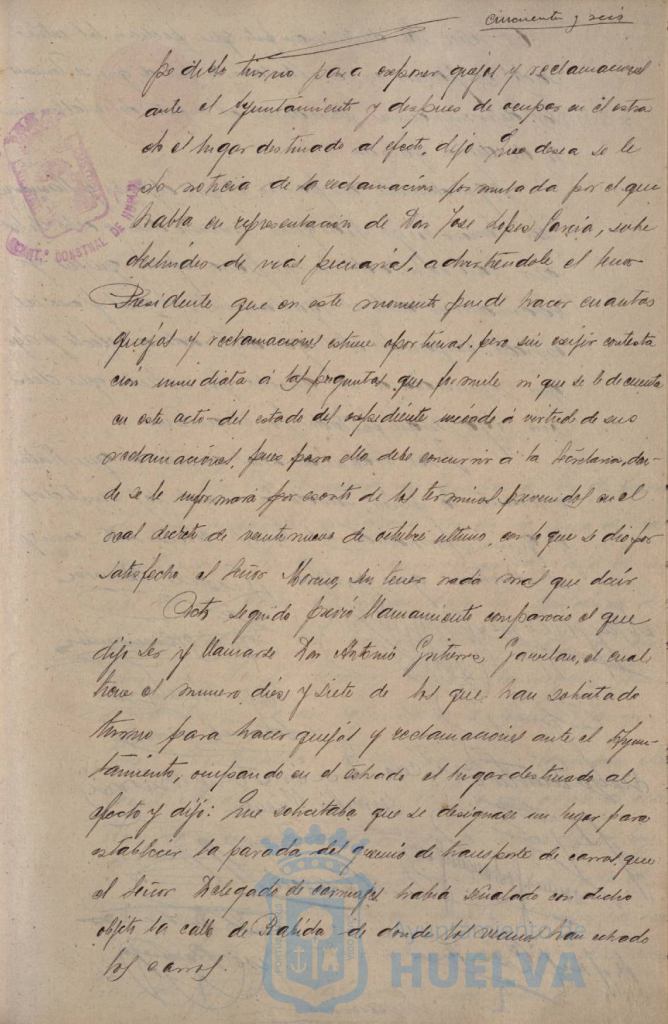 cincuenta y seis
pedido turno para exponer quejas y reclamaciones
ante el Ayuntamiento y despues de ocupar en el estra
do el lugar destinado al efecto, dijo: Que desea se le
de noticia de la reclamación formulada por el que
habla en representación de Don José Lopez Garcia, sobre
deslindes de vias pecuarias, advirtiendole el Señor
Presidente que en este momento puede hacer cuantas
quejas y reclamaciones estime oportunas, pero sin exijir contesta
ción inmediata á las preguntas que formule ni que se le de cuenta
en este acto del estado del expediente incoado á virtud de sus
reclamaciones, pues para ello debe concurrir á la Secretaria, don
de se le informará por escrito de los terminos prevenidos en el
real decreto de veintinueve de octubre ultimo, con lo que se dio por
satisfecho el Señor Moreno, sin tener nada mas que decir.
Acto seguido previo llamamiento compareció el que
dijo ser y llamarse Don Antonio Gutierrez Gavilan, el cual
tiene el numero diez y siete de los que han solicitado
turno para hacer quejas y reclamaciones ante el Ayun-
tamiento, ocupando en el estrado el lugar destinado al
efecto y dijo: Que solicitaba que se designase un lugar para
establecer la parada del gremio de transporte de carros que
el Señor Delegado de carruajes habia señalado con dicho
objeto la calle de Rabida de donde los vecinos han echado
los carros.
CONSTNAL DE HUELVA
Ayuntamiento de
HUELVA